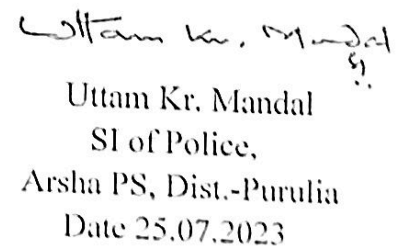 Uttam Kr. Mandal
SI
Uttam Kr. Mandal
SI of Police,
Arsha PS, Dist.-Purulia
Date 25.07.2023